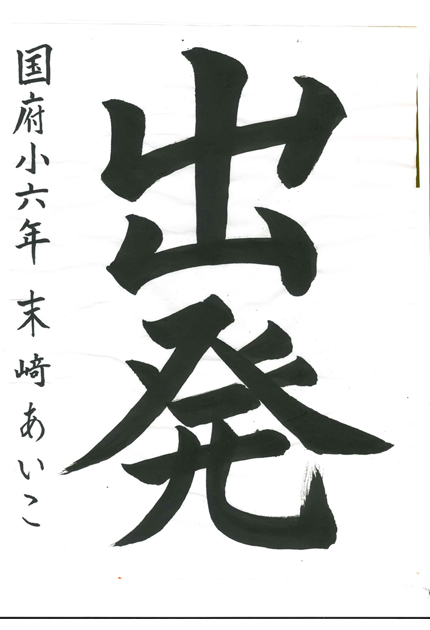 出発
国府小六年 末﨑あいこ